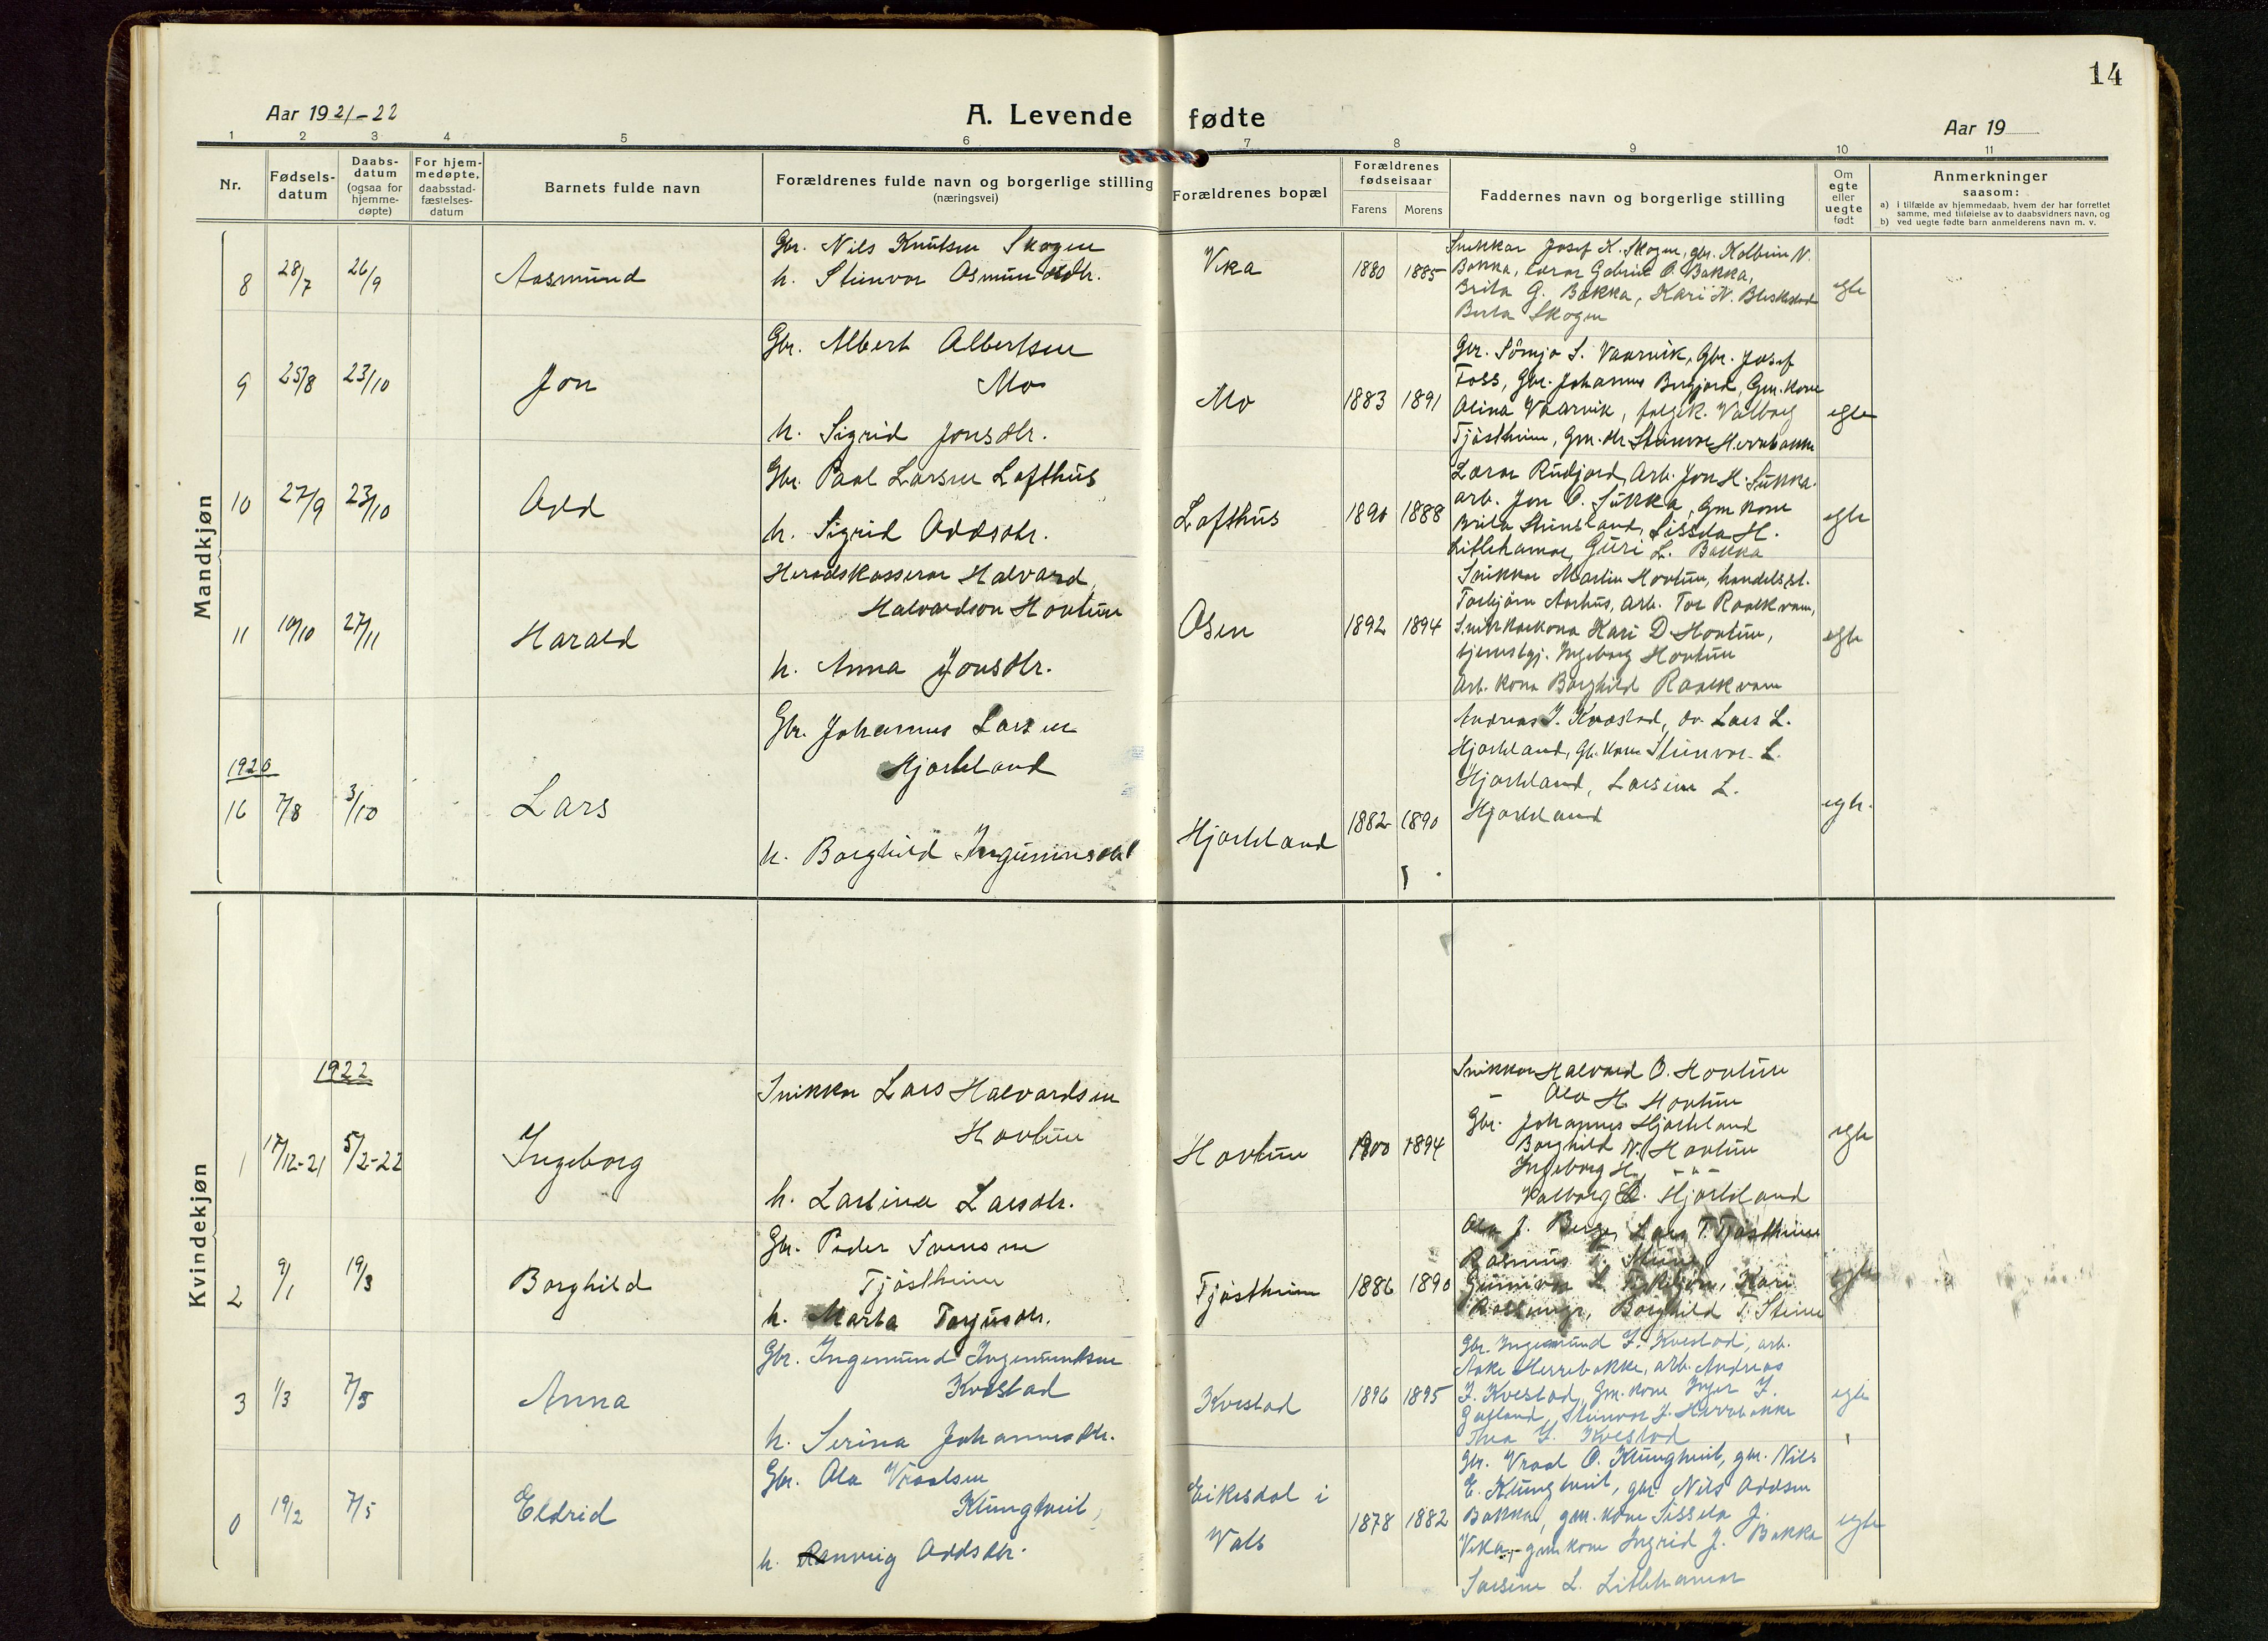 14
Aar 1921-22
A. Levende fødte
Aar 19
1 2 3 4 5 6 7 8 9 10 11
Nr.
Fødsels-
datum
Daabs-
datum
(ogsaa for
hjemme-
døpte)
For hjem-
medøpte,
daabsstad-
fæstelses-
datum
Barnets fulde navn
Forældrenes fulde navn og borgerlige stilling
(næringsvei)
Forældrenes bopæl
Forældrenes
fødselsaar
Farens Morens
Faddernes navn og borgerlige stilling
Om
egte
eller
uegte
født
Anmerkninger
saasom:
a) i tilfælde av hjemmedaab, hvem der har forrettet
samme, med tilføielse av to daabsvidners navn, og
b) ved uegte fødte barn anmelderens navn m. v.
Mandkjøn
8 28/7 26/9 Aasmund
Gbr. Nils Knutsen Skogen
h. Steinvor Osmundsdtr.
Vika 1880 1885
Snekkar Josef K. Skogen, gbr. Kolbein N.
Bakka, lærar Gabriel O. Bakka,
Brita G. Bakka, Kari N. Bleskestad
Berta Skogen
egte
9 25/8 23/10 Jon
Gbr. Albert Albertsen
Mo
h. Sigrid Jonsdtr.
Mo 1883 1891
Gbr. Sömjo S. Vaarvik, Gbr. Josef
Foss, Gbr. Johannes Bergjord, Gm. kone
Alina Vaarvik, Valborg
Tjöstheim, Gm. dtr Steinvor Herrabakke
egte
10 27/9 23/10 Odd
Gbr. Paal Larsen Lofthus
h. Sigrid Oddsdtr.
Lofthus 1890 1888
Lærar Rudjord, Arb. Jon H. Sukka.
arb. Jon O. Sukka, Gm kone
Brita Steinsland, Sissela H.
Litlehamar, Guri L. Bakka
egte
11 10/10 27/11 Harald
Heradskasserar Halvard
Halvardson Hovtun
h. Anna Jonsdtr.
Osen 1892 1894
Snikkar Martin Hovtun, handelsst.
Torbjörn Aarhus, arb. Tor Raalkvam,
Snikkarkona Kari D Hovtun,
tjenestgj. Ingeborg Hovtun
Arb. kona Borghild Raalkvam
egte
1920
16 7/8 3/10 Lars
Gbr. Johannes Larsen
Hjorteland
h. Borghild Ingumunsdtr
Hjorteland 1882 1890
Andreas I. Kvæstad, Lars L.
Hjorteland, Gb. kone Steinvor L.
Hjorteland, Larsine L.
Hjorteland
egte.
Kvindekjøn
1922
1 17/12-21 5/2-22 Ingeborg
Snikkar Lars Halvardsen
Hovtun
h. Lartina Larsdtr.
Hovtun 1900 1894
Snikkar Halvard O. Hovtun
- Ola H. Hovtun
Gbr. Johannes Hjorteland
Borghild N. Hovtun
Ingeborg H. - " -
Valborg Hjorteland
egte
2 9/1 19/3 Borghild
Gbr. Peder Svensen
Tjöstheim
h. Marta Torjusdtr.
Tjöstheim 1886 1890
Ola J. Berge, Lars T. Tjöstheim
Rasmus T. Steine
Gunvor L. Kari
Borghild T. Steine
egte
3 1/3 7/5 Anna
Gbr. Ingemund Ingemundsen
Kvestad
h. Serina Johannesdtr.
Kvestad 1896 1895
Gbr. Ingemund I. Kvestad, arb.
Aske Herrebakke, arb. Andreas
I. Kvestad, Gm. kone Inger I.
Gautland, Steinvor J. Herrebakke
Thea I. Kvestad
egte
0 19/2 7/5 Eldrid
Gbr. Ola Vraalsen
Klungtveit,
h. Ranveig Oddsdtr.
Eikesdal i
Vals
1878 1882
Gbr. Vraal O. Klungtveit, gbr. Nils
E. Klungtveit, gbr. Nils Oddsen
Bakka, gm. kone Sissela J.
Vika, gm kone Ingrid J. Bakka
L. Litlehamar
egte